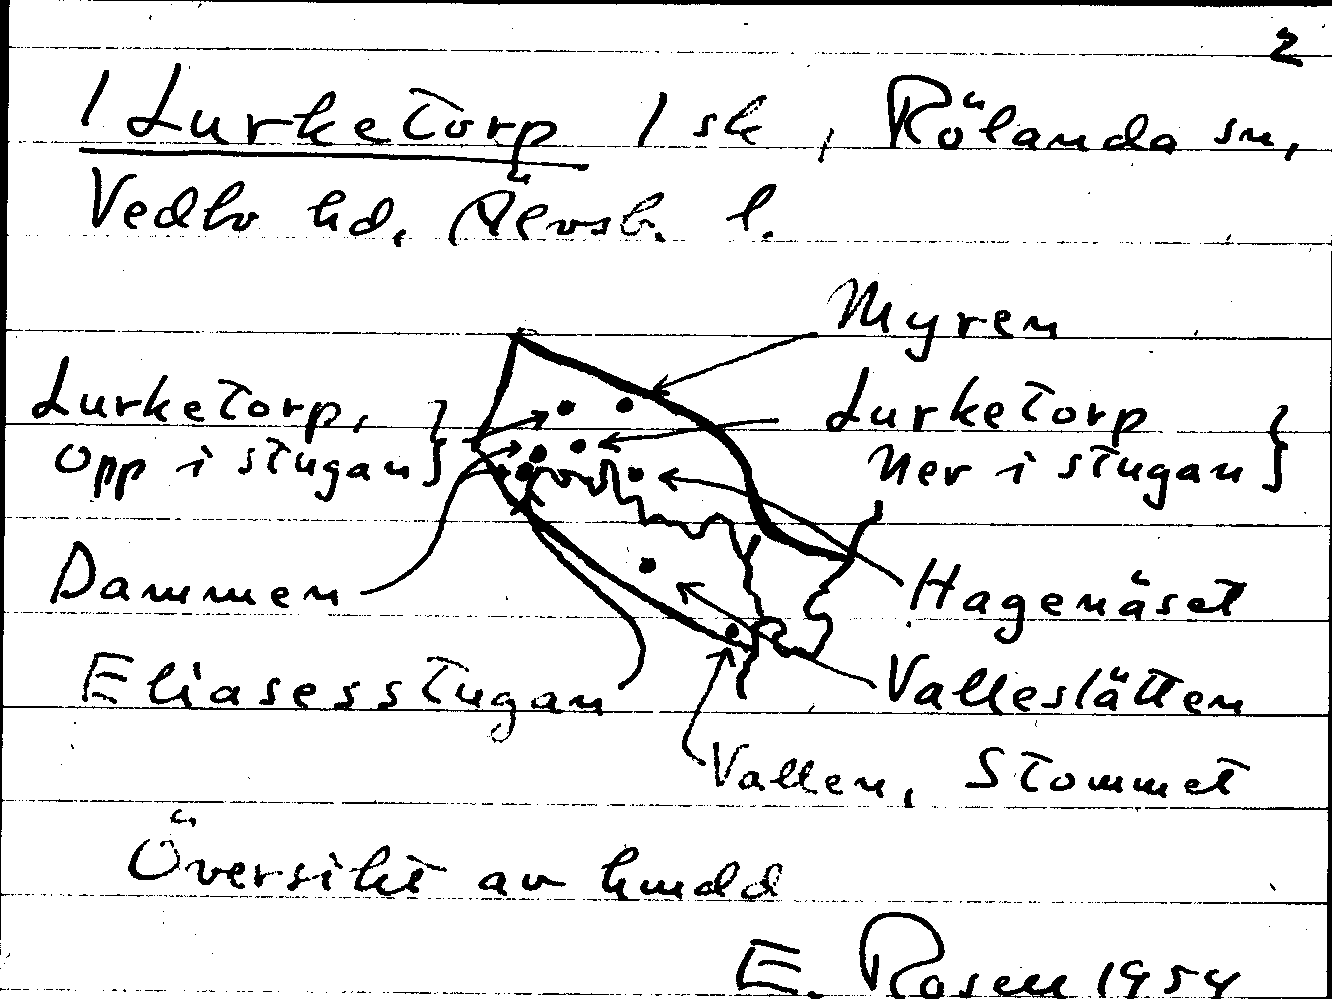 2
/ Lurketorp / sk, Rölanda sn,
Vedbo hd, Älvsb. l.
Myren
Lurketorp,
Opp i stugan }
Lurketorp
Ner i stugan }
Dammen
Hagenäset
Eliasesstugan
Valleslätten
Vallen, Stommet
Översikt av hmdd
E. Rosen 1954